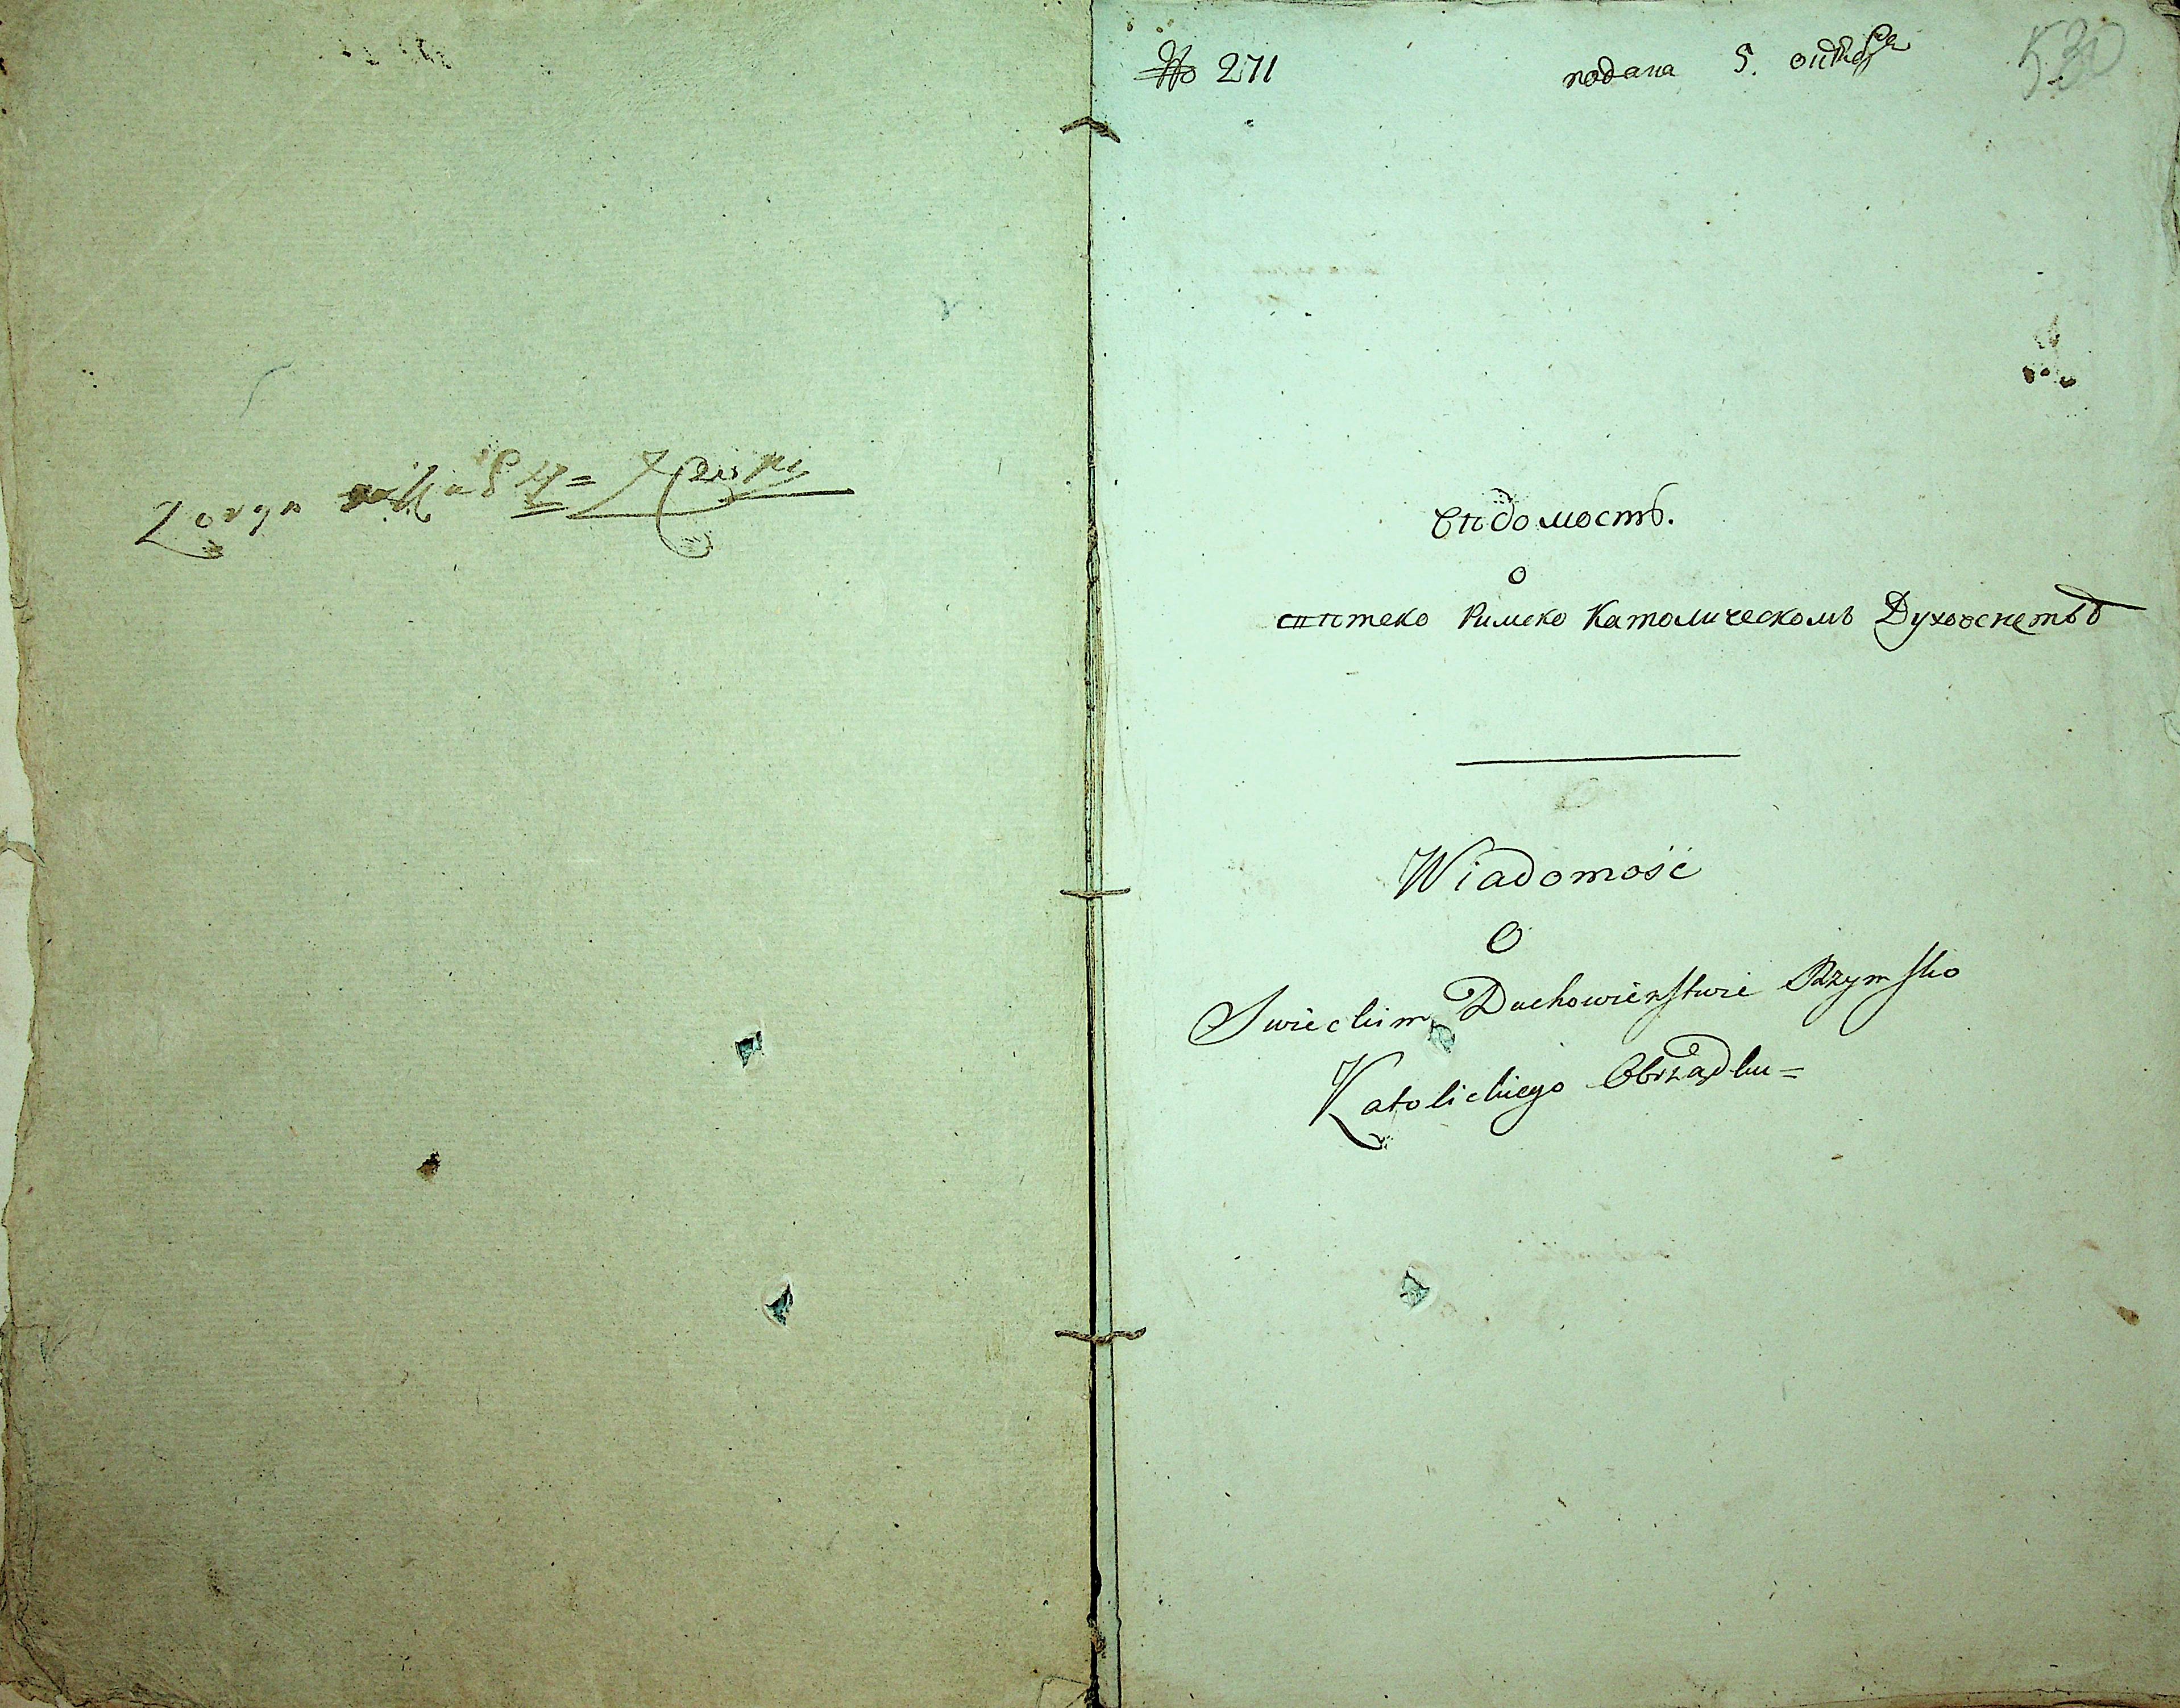 No 271
подана 5. октября
530
вѣдомость.
о
свѣтско Римско Католическомъ Духовенствѣ
Wiadomość
O
Swieckim Duchowieństwie Rzymsko
Katolickiego Obrządku=